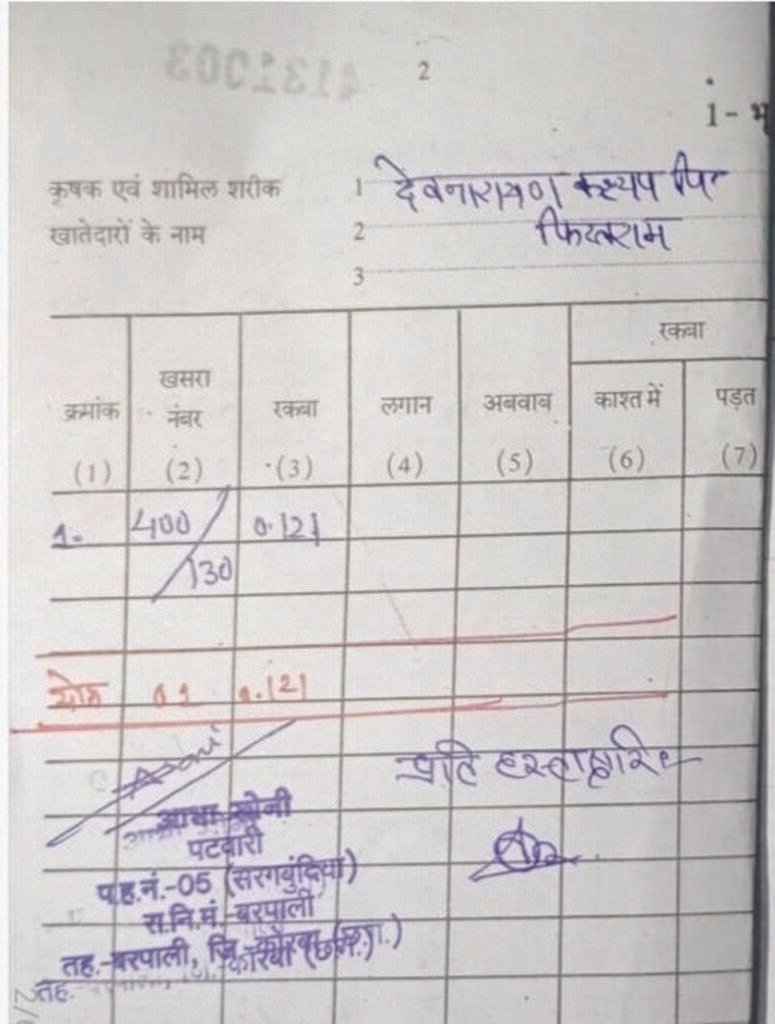 2
1- भू
कृषक एवं शामिल शरीक 1 देवनारायण कश्यप पि
खातेदारों के नाम 2 फिरतराम
3
रकबा
क्रमांक खसरा नंबर रकबा लगान अबवाब काश्त में पड़त
(1) (2) (3) (4) (5) (6) (7)
1. 400/130 0.121
योग 01 0.121
प्रति हस्ताक्षरित
सोनी
पटवारी
प.ह.नं.-05 (सरगबुंदिया)
रा.नि.मं.-बरपाली
तह.-बरपाली, जि.-कोरबा (छ.ग.)
तह.